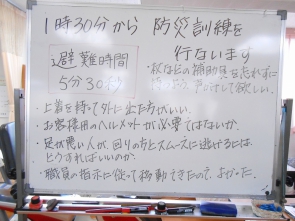 1時30分から 防災訓練を
行ないます
避難時間
5分30秒
・杖などの補助具を忘れずに
声かけして欲しい。
・上着を持って外に出た方がいい。
・お客様用のヘルメットが必要ではないか。
・足が悪い人が、回りの方とスムーズに逃げるには、
どうすればいいのか。
・職員の指示に従って移動できたので、よかった。